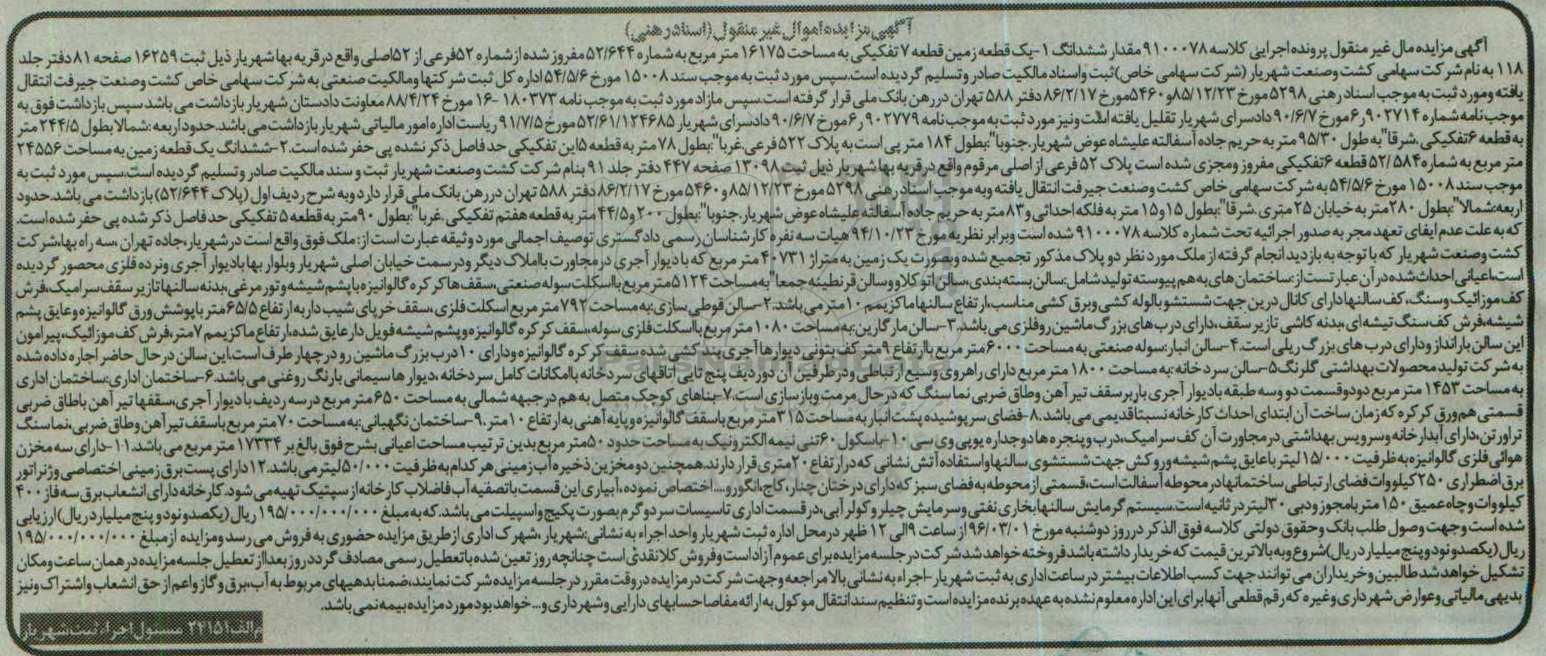 آگهی مزایده اموال غیر منقول (اسناد رهنی)
آگهی مزایده مال غیر منقول پرونده اجرایی کلاسه ۹۱۰۰۰۷۸ مقدار ششدانگ ۱-یک قطعه زمین قطعه ۷ تفکیکی به مساحت ۱۶۱۷۵ متر مربع به شماره ۵۲/۶۴۴ مفروز شده از شماره ۵۲فرعی از ۵۲اصلی واقع در قریه بها شهریار ذیل ثبت ۱۶۲۵۹ صفحه ۸۱ دفتر جلد
۱۱۸ به نام شرکت سهامی کشت وصنعت شهریار (شرکت سهامی خاص) ثبت واسناد مالکیت صادر وتسلیم گردیده است.سپس مورد ثبت به موجب سند ۱۵۰۰۸ مورخ ۵۴/۵/۶ اداره کل ثبت شرکتها ومالکیت صنعتی به شرکت سهامی خاص کشت وصنعت جیرفت انتقال
یافته ومورد ثبت به موجب اسناد رهنی ۵۲۹۸ مورخ ۸۵/۱۲/۲۳و ۵۴۶۰مورخ ۸۶/۲/۱۷ دفتر ۵۸۸ تهران دررهن بانک ملی قرار گرفته است.سپس مازاد مورد ثبت به موجب نامه ۱۸۰۳۷۳-۱۶ مورخ ۸۸/۴/۲۴ معاونت دادستان شهریار بازداشت می باشد سپس بازداشت فوق به
موجب نامه شماره ۹۰۲۷۱۴ر۶ مورخ ۹۰/۶/۷ دادسرای شهریار تقلیل یافته است ونیز مورد ثبت به موجب نامه ۹۰۲۷۷۹ر۶ مورخ ۹۰/۶/۷ دادسرای شهریار ۵۲/۶۱/۱۲۴۶۸۵ مورخ ۹۱/۷/۵ ریاست اداره امور مالیاتی شهریار بازداشت می باشد.حدود اربعه:شمالا بطول ۲۴۴/۵ متر
به قطعه ۶تفکیکی،شرقا"به طول ۹۵/۳۰ متر به حریم جاده آسفالته علیشاه عوض شهریار.جنوبا"بطول ۱۸۴ متر پی است به پلاک ۵۲۲ فرعی،غربا"بطول ۷۸ متر به قطعه ۱۵ین تفکیکی حد فاصل ذکر نشده پی حفر شده است.۲-ششدانگ یک قطعه زمین به مساحت ۲۴۵۵۶
متر مربع به شماره ۵۲/۵۸۴ قطعه ۶تفکیکی مفروز ومجزی شده است پلاک ۵۲ فرعی از اصلی مرقوم واقع در قریه بها شهریار ذیل ثبت ۱۳۰۹۸ صفحه ۴۴۷ دفتر جلد ۹۱ بنام شرکت کشت وصنعت شهریار ثبت و سند مالکیت صادر وتسلیم گردیده است.سپس مورد ثبت به
موجب سند ۱۵۰۰۸ مورخ ۵۴/۵/۶ به شرکت سهامی خاص کشت وصنعت جیرفت انتقال یافته وبه موجب اسناد رهنی ۵۲۹۸ مورخ ۸۵/۱۲/۲۳و ۵۴۶۰ مورخ ۸۶/۲/۱۷ دفتر ۵۸۸ تهران دررهن بانک ملی قرار دارد وبه شرح ردیف اول (پلاک ۵۲/۶۴۴) بازداشت می باشد.حدود
اربعه:شمالا"بطول ۲۸۰متر به خیابان ۲۵ متری.شرقا"بطول ۱۵و۱۵ متر به فلکه احداثی و۸۳ متر به حریم جاده آسفالته علیشاه عوض شهریار.جنوبا"بطول ۲۰۰و۴۴/۵ متر به قطعه هفتم تفکیکی.غربا"بطول ۹۰ متر به قطعه ۵ تفکیکی حد فاصل ذکر شده پی حفر شده است.
که به علت عدم ایفای تعهد مجر به صدور اجرائیه تحت شماره کلاسه ۹۱۰۰۰۷۸ شده است وبرابر نظریه مورخ ۹۴/۱۰/۲۳ هیات سه نفره کارشناسان رسمی دادگستری توصیف اجمالی مورد وثیقه عبارت است از:ملک فوق واقع است در شهریار،جاده تهران ،سه راه بها،شرکت
کشت وصنعت شهریار که با توجه به بازدید انجام گرفته از ملک مورد نظر دو پلاک مذکور تجمیع شده وبصورت یک زمین به متراژ ۴۰۷۳۱ متر مربع که با دیوار آجری در مجاورت باملاک دیگر ودرسمت خیابان اصلی شهریار وبلوار بها با دیوار آجری ونرده فلزی محصور گردیده
است،اعیانی احداث شده در آن عبارتست از:ساختمان های به هم پیوسته تولید شامل:سالن بسته بندی،سالن اتوکلاو وسالن قرنطینه جمعا"به مساحت ۵۱۲۴متر مربع بااسکلت سوله صنعتی،سقف ها کرکره گالوانیزه با پشم شیشه وتور مرغی،بدنه سالنها تازیر سقف سرامیک،فرش
کف موزائیک وسنگ،کف سالنها دارای کانال درین جهت شستشو بالوله کشی وبرق کشی مناسب،ارتفاع سالنها ماکزیمم ۱۰ متر می باشد.۲-سالن قوطی سازی:به مساحت ۷۹۲متر مربع اسکلت فلزی،سقف خرپای شیب دار به ارتفاع ۶۵/۵ متر باپوشش ورق گالوانیزه وعایق پشم
شیشه،فرش کف سنگ تیشه ای،بدنه کاشی تازیر سقف،دارای درب های بزرگ ماشین رو فلزی می باشد.۳-سالن مارگارین:به مساحت ۱۰۸۰ متر مربع بااسکلت فلزی سوله،سقف کرکره گالوانیزه وپشم شیشه فویل دار عایق شده،ارتفاع ماکزیمم ۷متر،فرش کف موزائیک،پیرامون
این سالن بارانداز ودارای درب های بزرگ ریلی است.۴-سالن انبار:سوله صنعتی به مساحت ۶۰۰۰متر مربع باارتفاع ۹متر کف بتونی دیوارها آجری بند کشی شده سقف کرکره گالوانیزه ودارای ۱۰ درب بزرگ ماشین رو در چهار طرف است.این سالن درحال حاضر اجاره داده شده
به شرکت تولید محصولات بهداشتی گلرنگ۵-سالن سردخانه:به مساحت ۱۸۰۰ متر مربع دارای راهروی وسیع ارتباطی ودرطرفین آن دوردیف پنج تایی اتاقهای سردخانه باامکانات کامل سردخانه ،دیوارها سیمانی بارنگ روغنی می باشد.۶-ساختمان اداری:ساختمان اداری
به مساحت ۱۴۵۳ متر مربع دودوقسمت دو وسه طبقه بادیوار آجری باربر سقف تیر آهن وطاق ضربی نما سنگ که درحال مرمت وبازسازی است.۷-بناهای کوچک متصل به هم در جبهه شمالی به مساحت ۶۵۰متر مربع در سه ردیف با دیوار آجری،سقفها تیر آهن باطاق ضربی
قسمتی هم ورق کرکره که زمان ساخت آن ابتدای احداث کارخانه نسبتا قدیمی می باشد.۸-فضای سرپوشیده پشت انبار به مساحت ۳۱۵متر مربع باسقف گالوانیزه وپایه آهنی به ارتفاع ۱۰متر.۹-ساختمان نگهبانی:به مساحت ۷۰متر مربع باسقف تیرآهن وطاق ضربی،نماسنگ
تراورتن،دارای آبدارخانه وسرویس بهداشتی در مجاورت آن کف سرامیک،درب وپنجره ها دوجداره یوپی وی سی ۱۰-باسکول ۶۰تنی نیمه الکترونیک به مساحت حدود ۵۰متر مربع بدین ترتیب مساحت اعیانی بشرح فوق بالغ بر ۱۷۳۳۴ متر مربع می باشد.۱۱-دارای سه مخزن
هوائی فلزی گالوانیزه به ظرفیت ۱۵/۰۰۰ لیتر با عایق پشم شیشه وروکش جهت شستشوی سالنها واستفاده آتش نشانی که در ارتفاع ۲۰متری قرار دارند.همچنین دو مخزین ذخیره آب زمینی هر کدام به ظرفیت ۵۰/۰۰۰لیترمی باشد.۱۲دارای پست برق زمینی اختصاصی وژنراتور
برق اضطراری ۲۵۰کیلووات فضای ارتباطی ساختمانها در محوطه آسفالت است،قسمتی از محوطه به فضای سبز که دارای درختان چنار،کاج،انگورو...اختصاص نموده،آبیاری این قسمت باتصفیه آب فاضلاب کارخانه از سپتیک تهیه می شود.کارخانه دارای انشعاب برق سه فاز ۴۰۰
کیلووات وچاه عمیق ۱۵۰ متر بامجوز ودبی ۳۰لیتر در ثانیه است.سیستم گرمایش سالنها بخاری نفتی وسرمایش چیلر وکولر آبی،درقسمت اداری تاسیسات سردوگرم بصورت پکیج واسپیلت می باشد.که به مبلغ ۱۹۵/۰۰۰/۰۰۰/۰۰۰ ریال (یکصدو نودو پنج میلیارد ریال)ارزیابی
شده است وجهت وصول طلب بانک وحقوق دولتی کلاسه فوق الذکر درروز دوشنبه مورخ ۹۶/۰۳/۰۱ از ساعت ۹الی ۱۲ ظهر در محل اداره ثبت شهریار واحد اجراء به نشانی:شهریار،شهرک اداری از طریق مزایده حضوری به فروش می رسد ومزایده از مبلغ ۱۹۵/۰۰۰/۰۰۰/۰۰۰
ریال (یکصدو نود وپنج میلیارد ریال)شروع وبه بالاترین قیمت که خریدار داشته باشد فروخته خواهد شد.شرکت در جلسه مزایده برای عموم آزاد است وفروش کلا نقدی است چنانچه روز تعیین شده باتعطیل رسمی مصادف گردد روز بعداز تعطیل جلسه مزایده در همان ساعت ومکان
تشکیل خواهد شد طالبین وخریداران می توانند جهت کسب اطلاعات بیشتر در ساعت اداری به ثبت شهریار-اجراء به نشانی بالا مراجعه وجهت شرکت در مزایده در وقت مقرر در جلسه مزایده شرکت نمایند،ضمنا بدهیهای مربوط به آب،برق و گاز واعم از حق انشعاب واشتراک ونیز
بدیهی مالیاتی وعوارض شهرداری وغیره که رقم قطعی آنها برای این اداره معلوم نشده به عهده برنده مزایده است وتنظیم سند انتقال موکول به ارائه مفاصا حسابهای دارایی وشهرداری و...خواهد بود مورد مزایده بیمه نمی باشد.
م الف ۲۴۱۵۱ مسئول اجراء ثبت شهریار